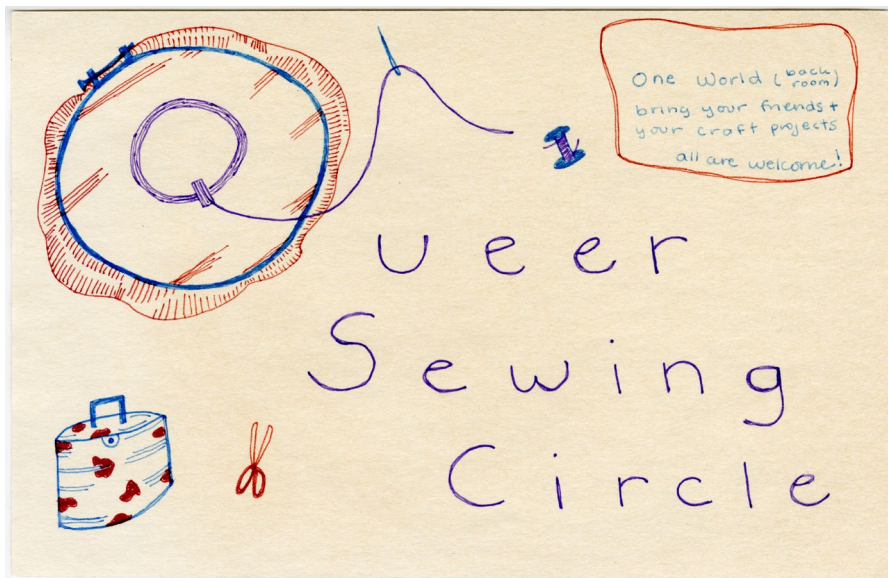 One World (back room)
bring your friends +
your craft projects
all are welcome!
Queer
Sewing
Circle